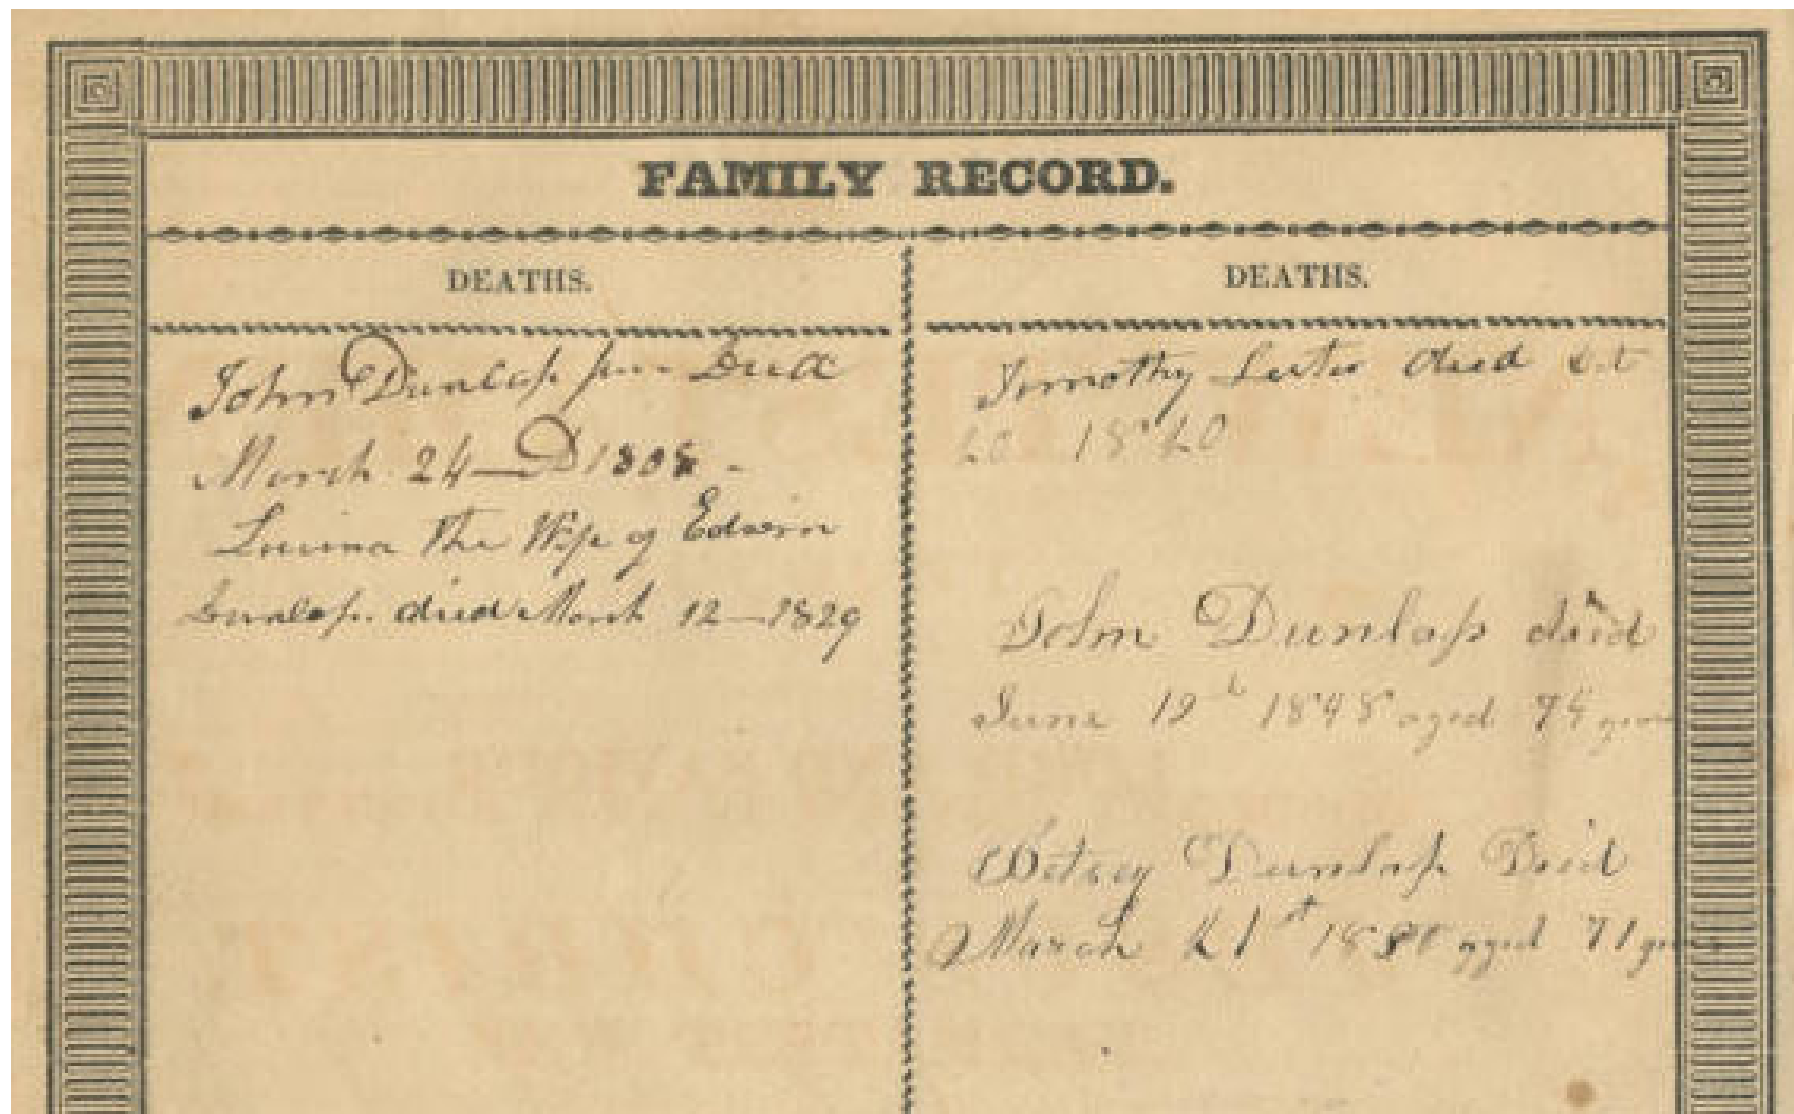 FAMILY RECORD.
DEATHS.
John Dunlap jun
March 24 D 1808
Lovina the Wife of Edwin
Dunlap died March 12 1829
DEATHS.
Timothy Lester died
1840
John Dunlap died
June 12 1848 aged 74 years
Betsey Dunlap Died
March 21st aged 71 years